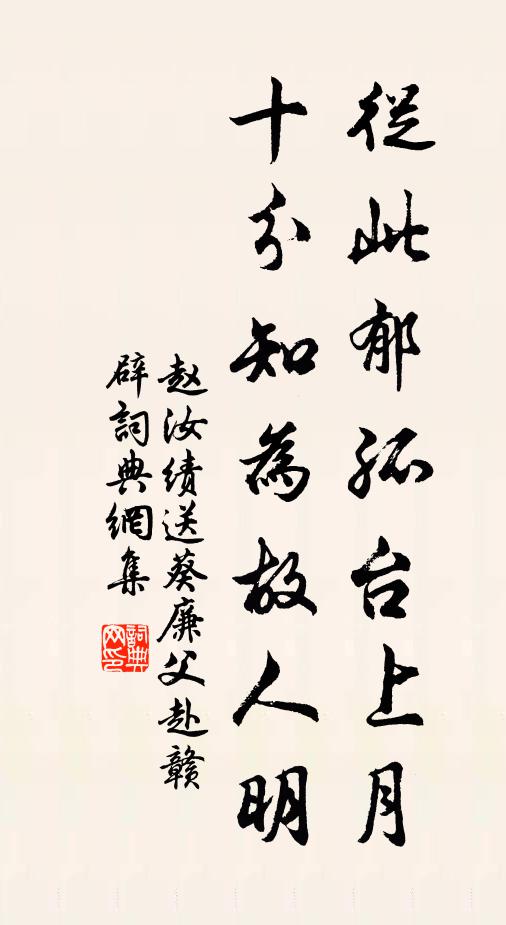 從此郁孤台上月
十分知為故人明
赵汝绩送葵廉父赴赣
辟詞典網集
詞典